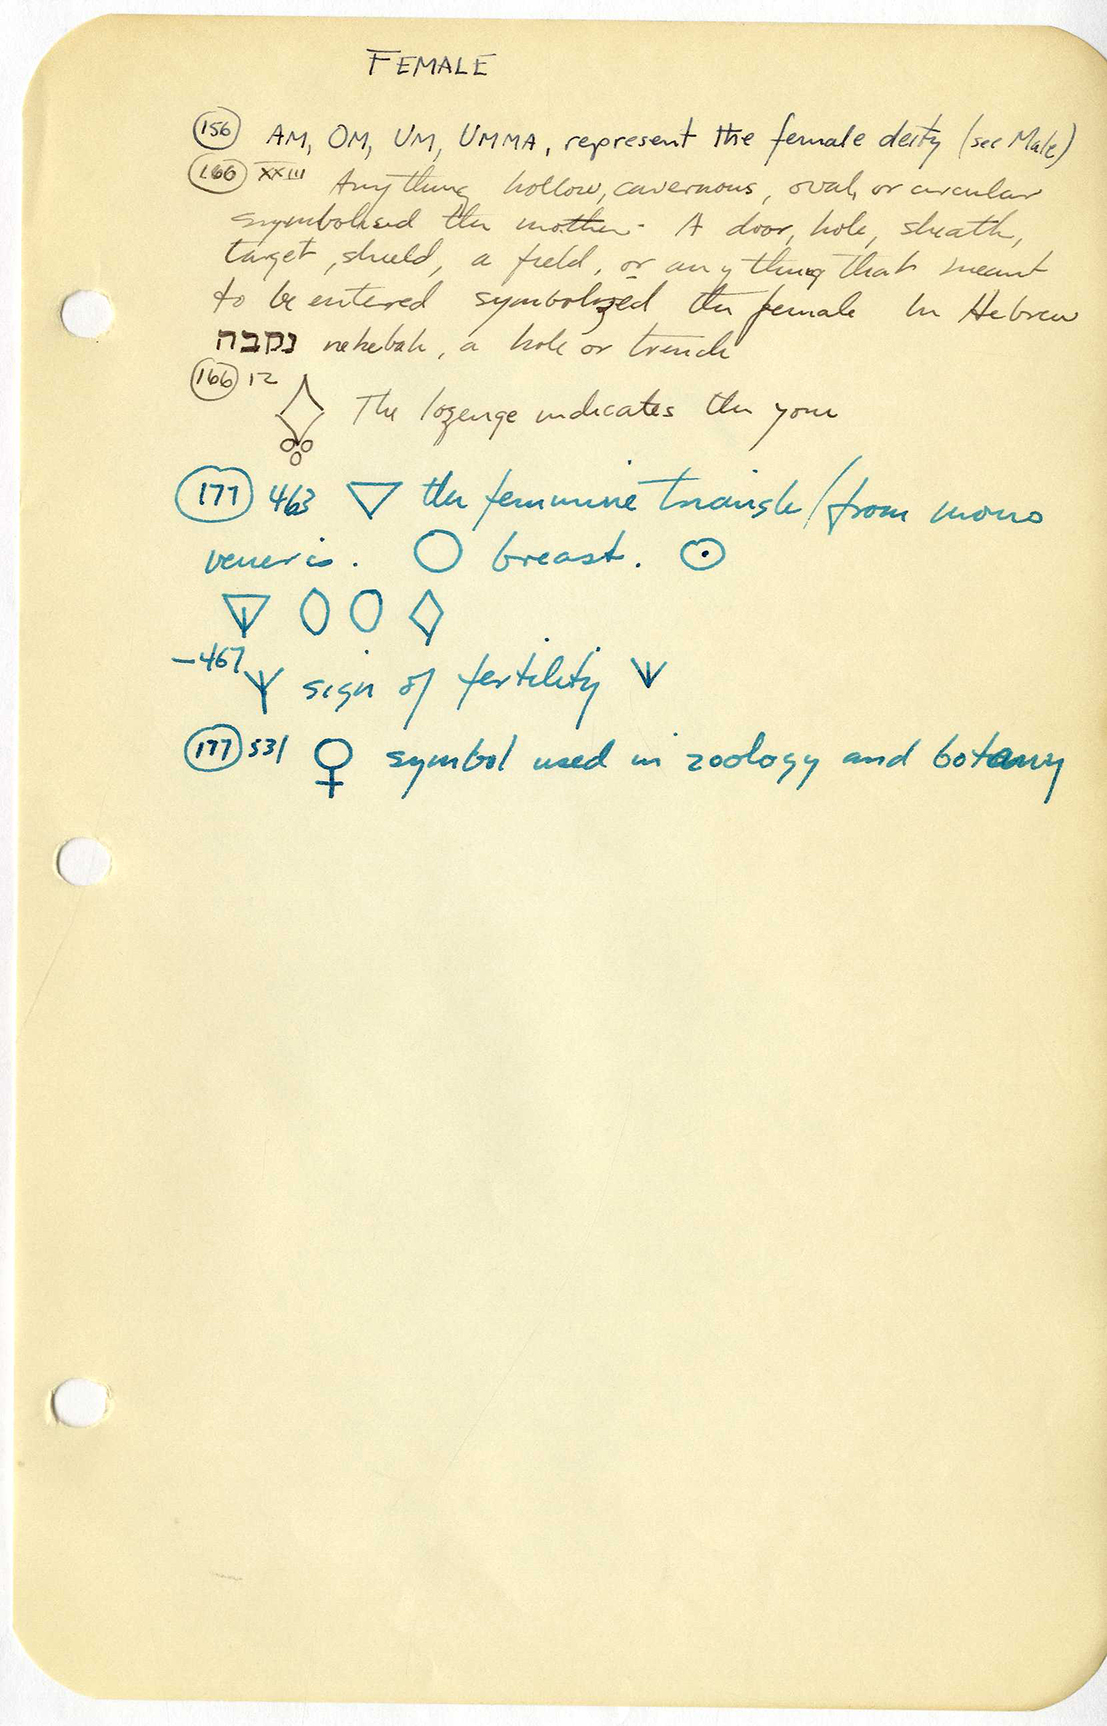 FEMALE
156 AM, OM, UM, UMMA, represent the female deity (see Male)
166 XXIII Anything hollow, cavernous, oval, or circular
symbolised the mother. A door, hole, sheath,
target, shield, a field, or anything that meant
to be entered symbolized the female In Hebrew
נקבה nekebah, a hole or trench
166 12
The lozenge indicates the yoni
177 463 ▽ the feminine triangle/from mons
veneris. ○ breast. ☉
-467
sign of fertility
177 531 ♀ symbol used in zoology and botany